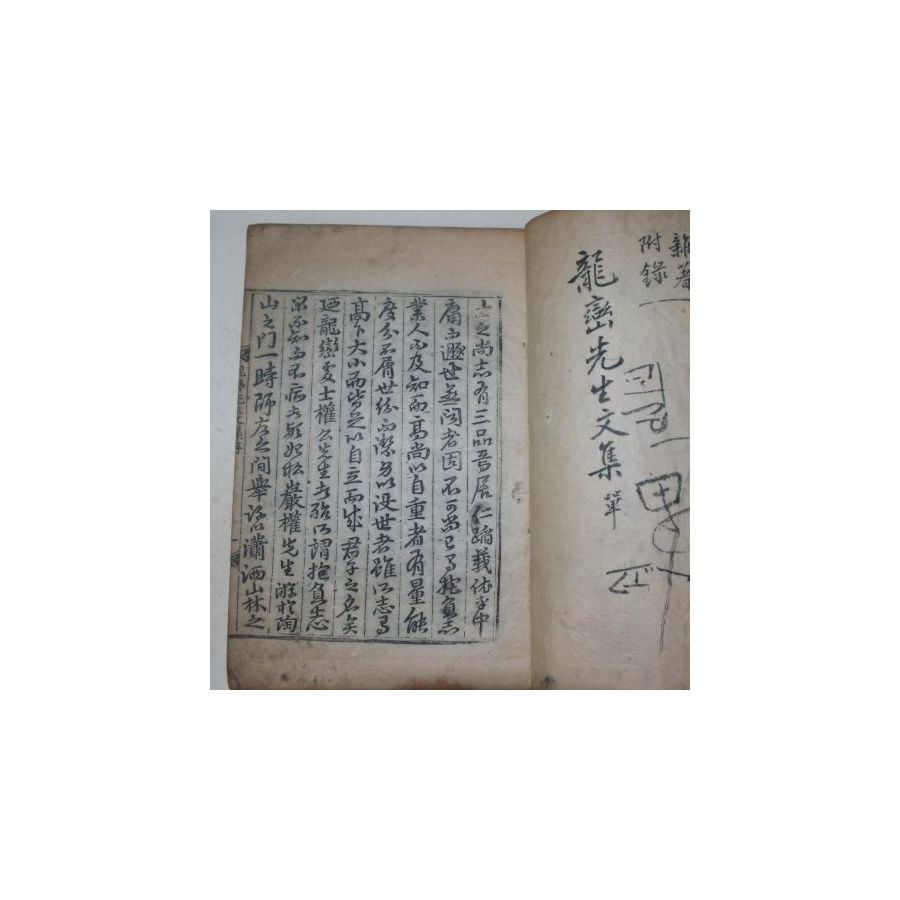 雜著
附錄
龍巒先生文集 單
士之尚志有三品焉居仁蹈義依乎中
庸而遯世無悶者固不可尚已焉抱負志
業人不及知而高尚以自重者有量能
度分不屑世紛而潔身以沒世者雖所志有
高下大小而皆足以自立而成君子之名矣
廼龍巒處士權公先生者殆所謂抱負志
業不知而不病者歟始松巖權先生游於陶
山之門一時師友之間舉認以瀟洒山林之